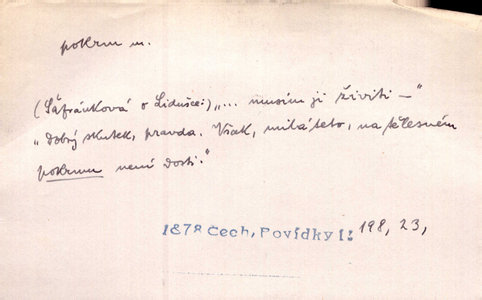 pokrm m.
(Šafránková o Lidušce:) „... musím ji živiti —"
„Dobrý skutek, pravda. Však, milá teto, na tělesném
pokrmu není dosti."
1878 Čech, Povídky I: 198, 23,